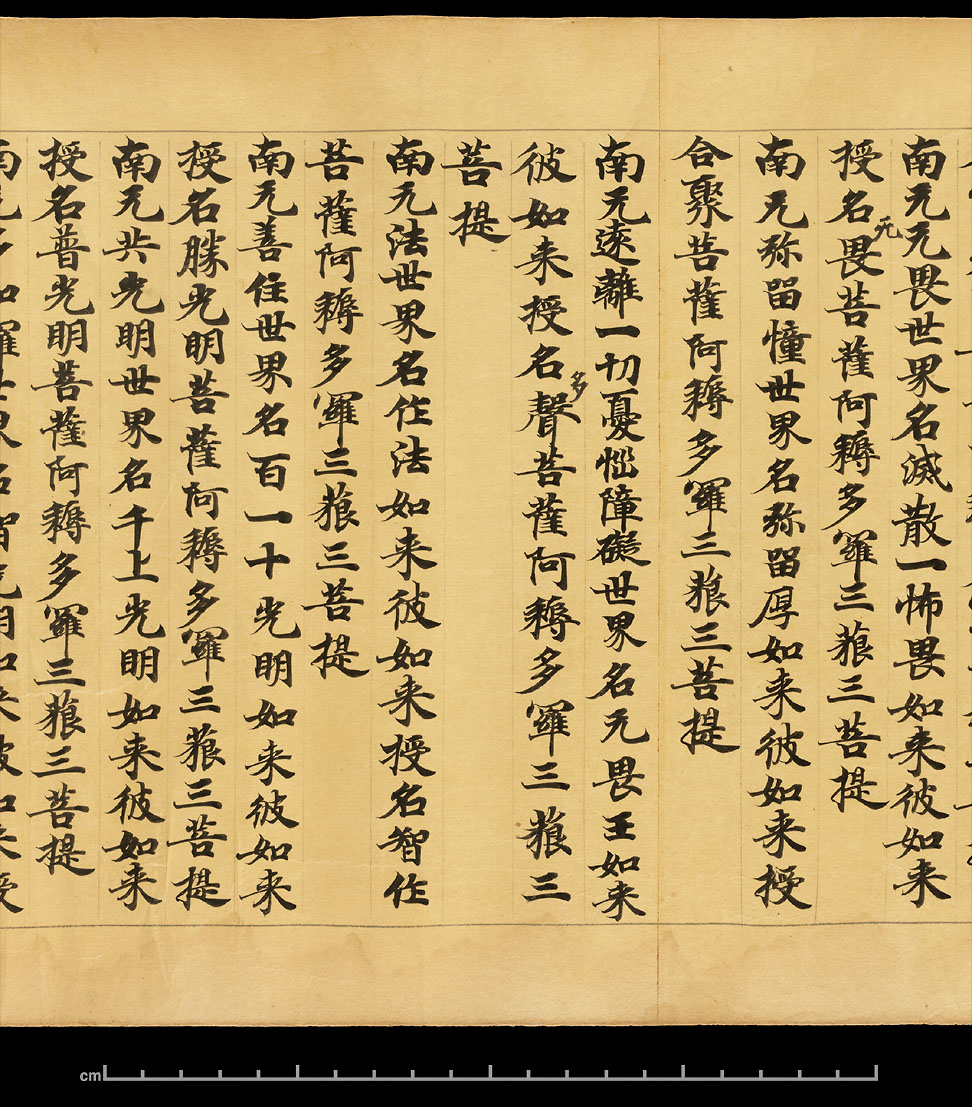 南无无畏世界名滅散一怖畏如来彼如来
授名无畏菩薩阿耨多羅三藐三菩提
南无弥留憧世界名弥留厚如来彼如来授
合聚菩薩阿耨多羅三藐三菩提
南无遠離一切憂惱障礙世界名无畏王如来
彼如来授名多聲菩薩阿耨多羅三藐三
菩提
南无法世界名作法如来彼如来授名智作
菩薩阿耨多羅三藐三菩提
南无善住世界名百一十光明如来彼如来
授名勝光明菩薩阿耨多羅三藐三菩提
南无共光明世界名千上光明如来彼如来
授名普光明菩薩阿耨多羅三藐三菩提